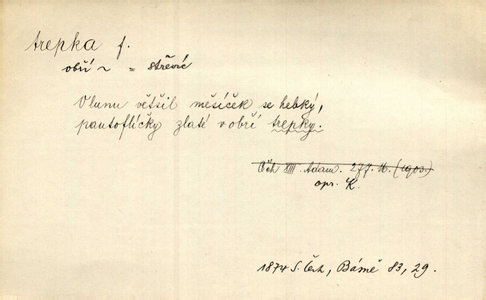 trepka f.
obří ~ = střevíc
V lunu většil měsíček se hebký,
pantoflíčky zlatí v obří trepky.
Čch XIII. Adam. 277. M. (1903)
opr. K.
1874 S. Čech, Básně 83, 29.